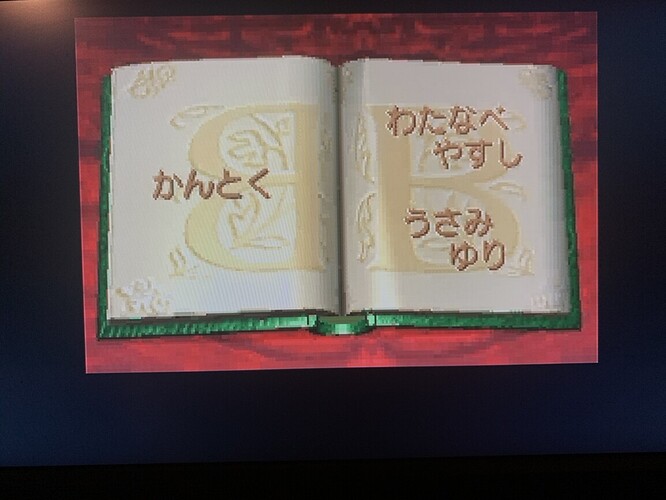 かんとく
わたなべ
やすし
うさみ
ゆり